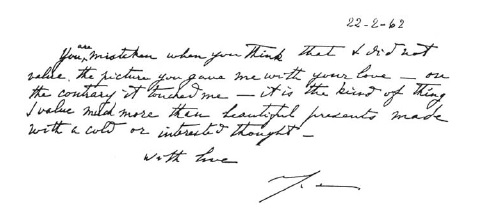 22-2-62
are
You, mistaken when you think that I did not
value the picture you gave me with your love — on
the contrary it touched me — it is the kind of thing
I value much more than beautiful presents made
with a cold or interested thought —
with love